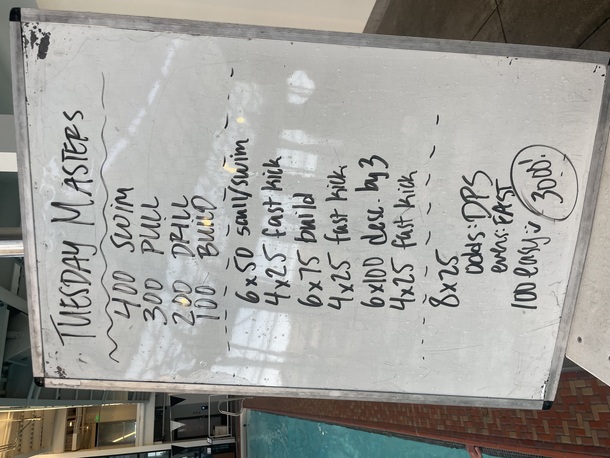 TUESDAY MASTERS
400 SWIM
300 PULL
200 DRILL
100 BUILD
6x50 scull/swim
4x25 fast kick
6x75 build
4x25 fast kick
6x100 desc. by 3
4x25 fast kick
8x25
odds: DPS
evens: FAST
100 easy :)
3000!